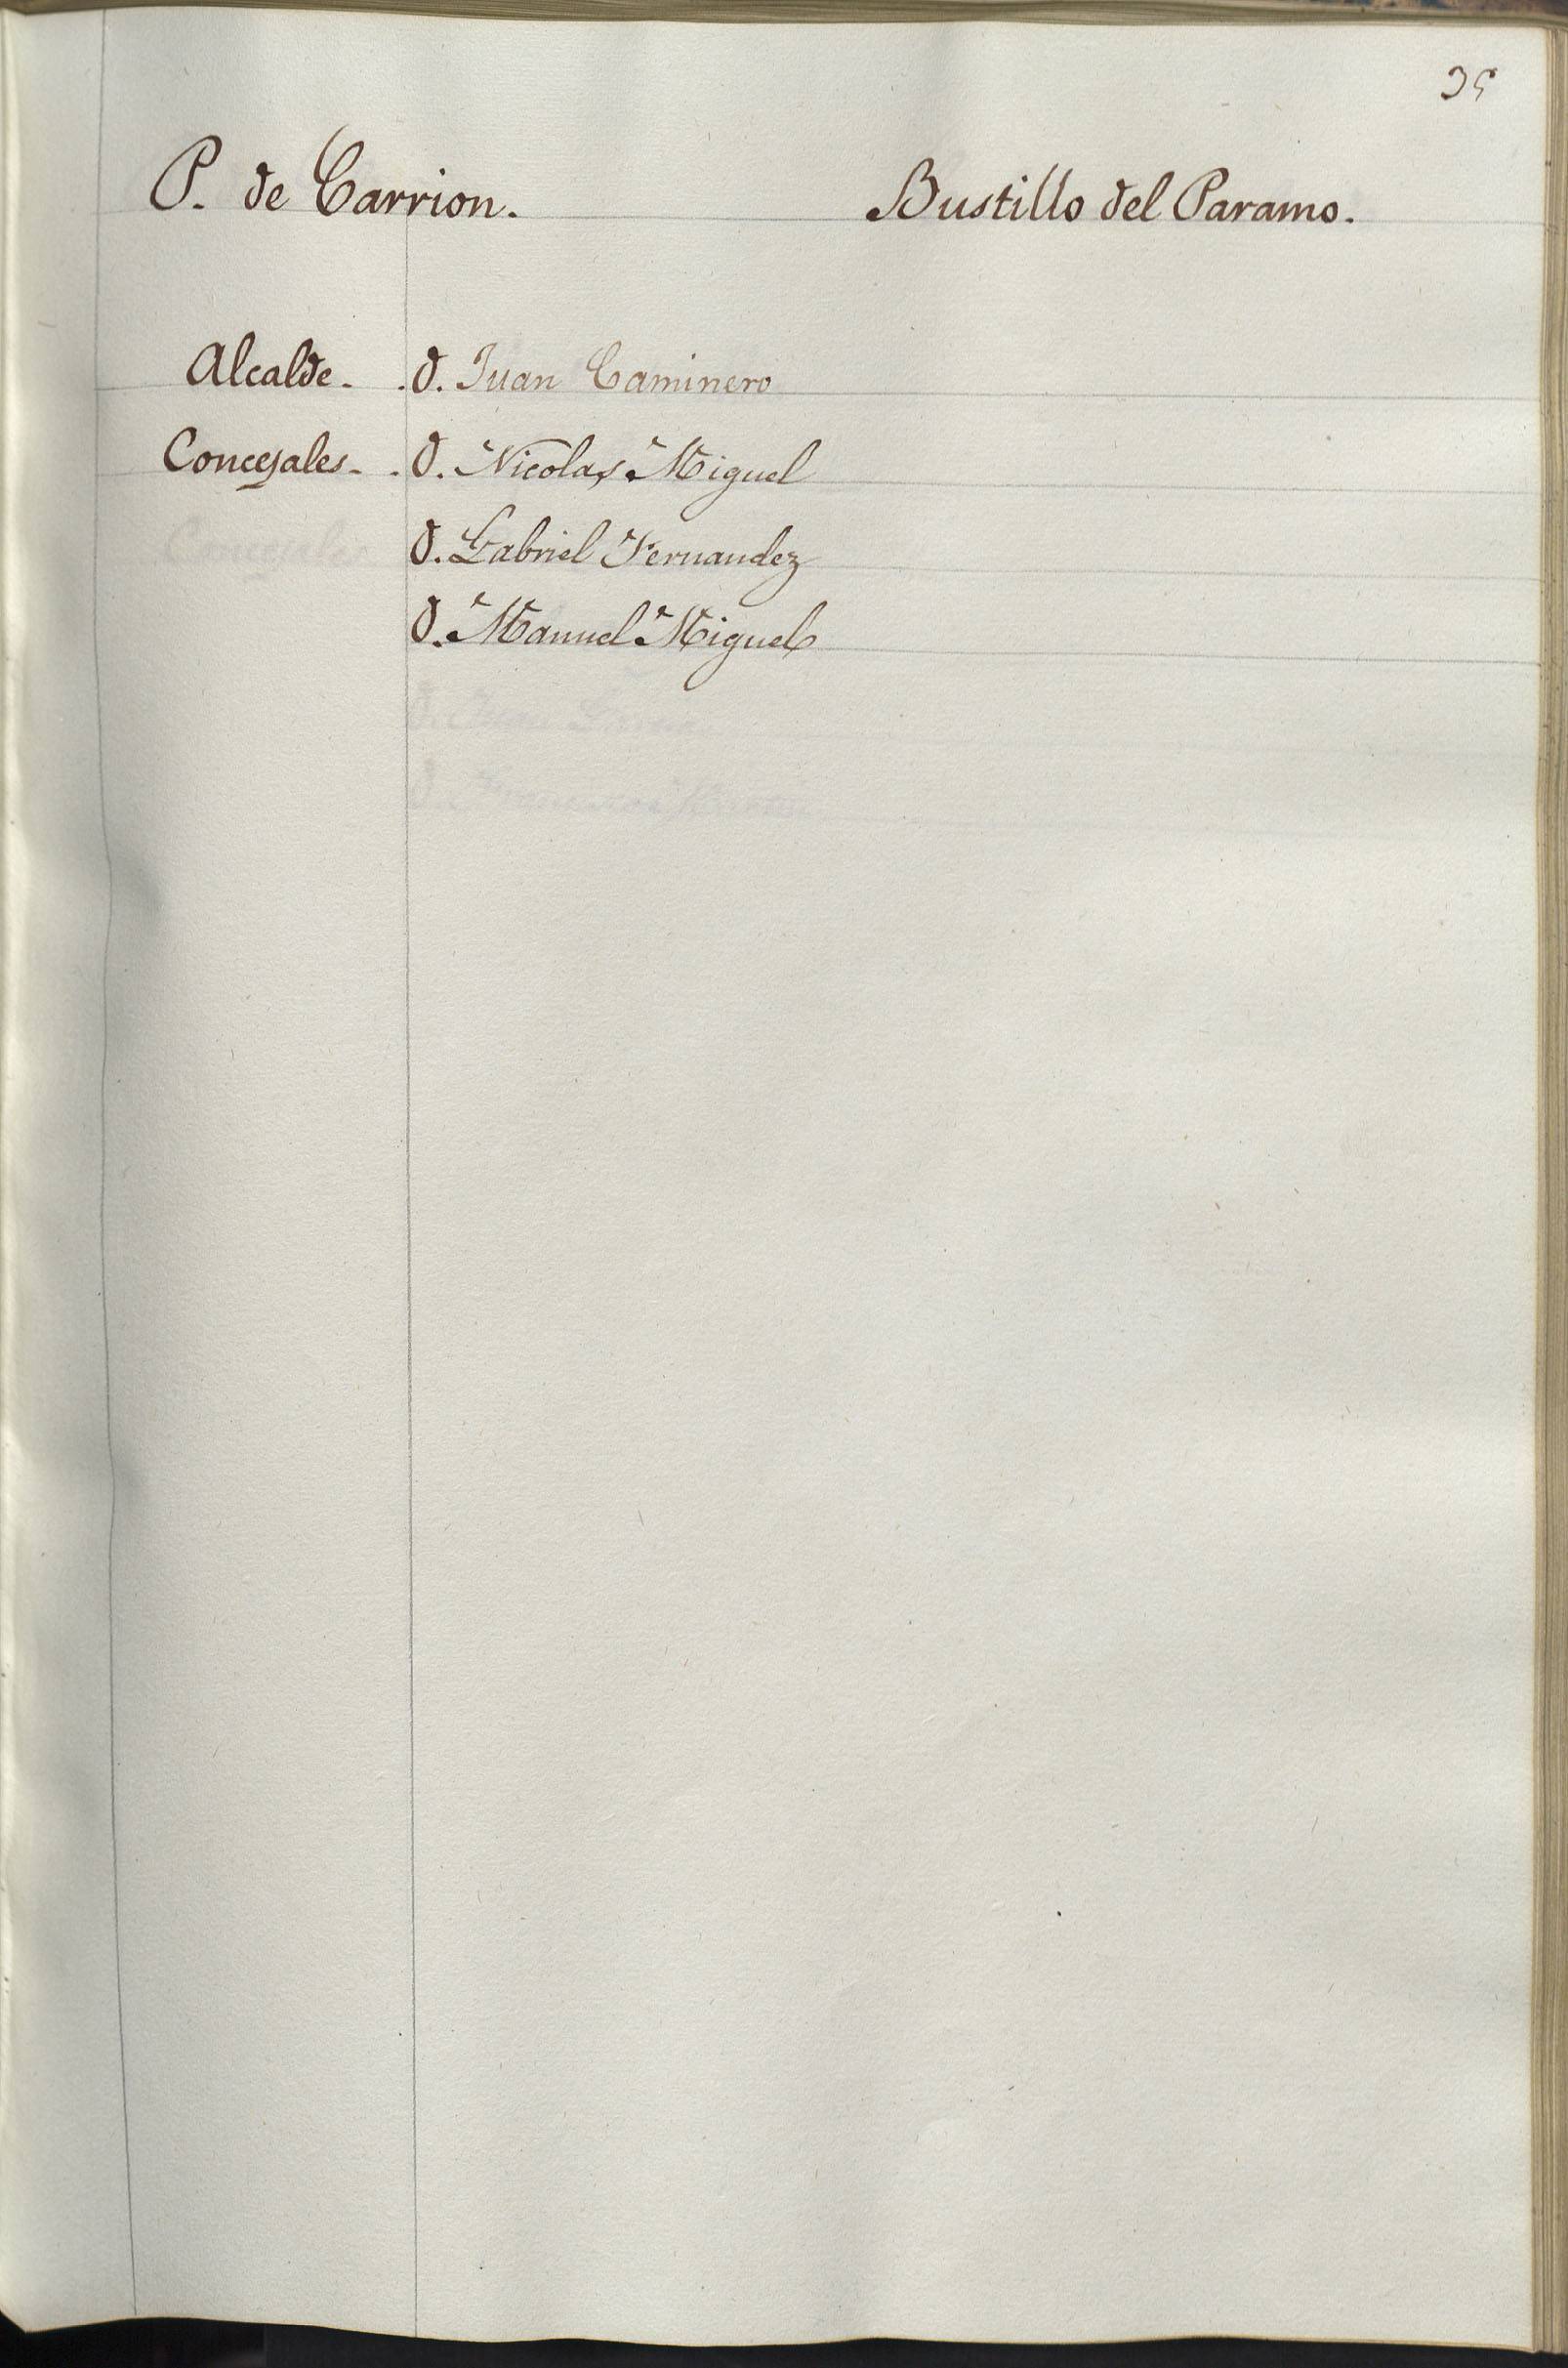 35
P. de Carrion. Bustillo del Paramo.
Alcalde. . D. Juan Caminero
Concejales. . D. Nicolas Miguel
Concejales D. Gabriel Fernandez
D. Manuel Miguel
D. Juan
D. Francisco